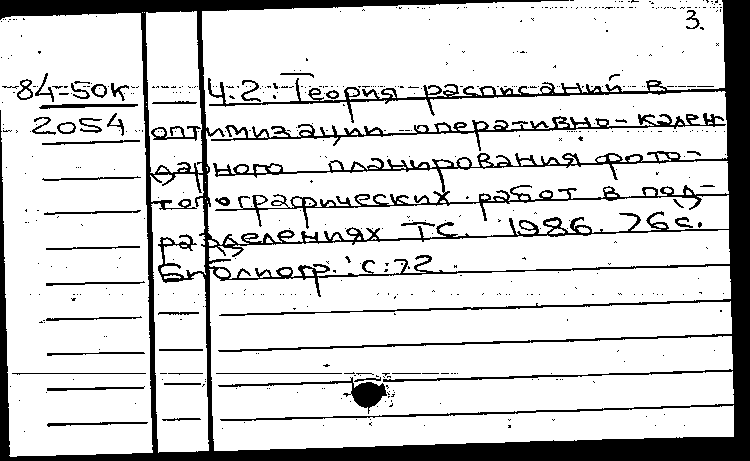 3.
84-50к Ч.2: Теория расписаний в
2054 оптимизации оперативно-кален
дарного планирования фото-
топографических работ в под-
разделениях ТС. 1986. 76с.
Библиогр.: с.72.